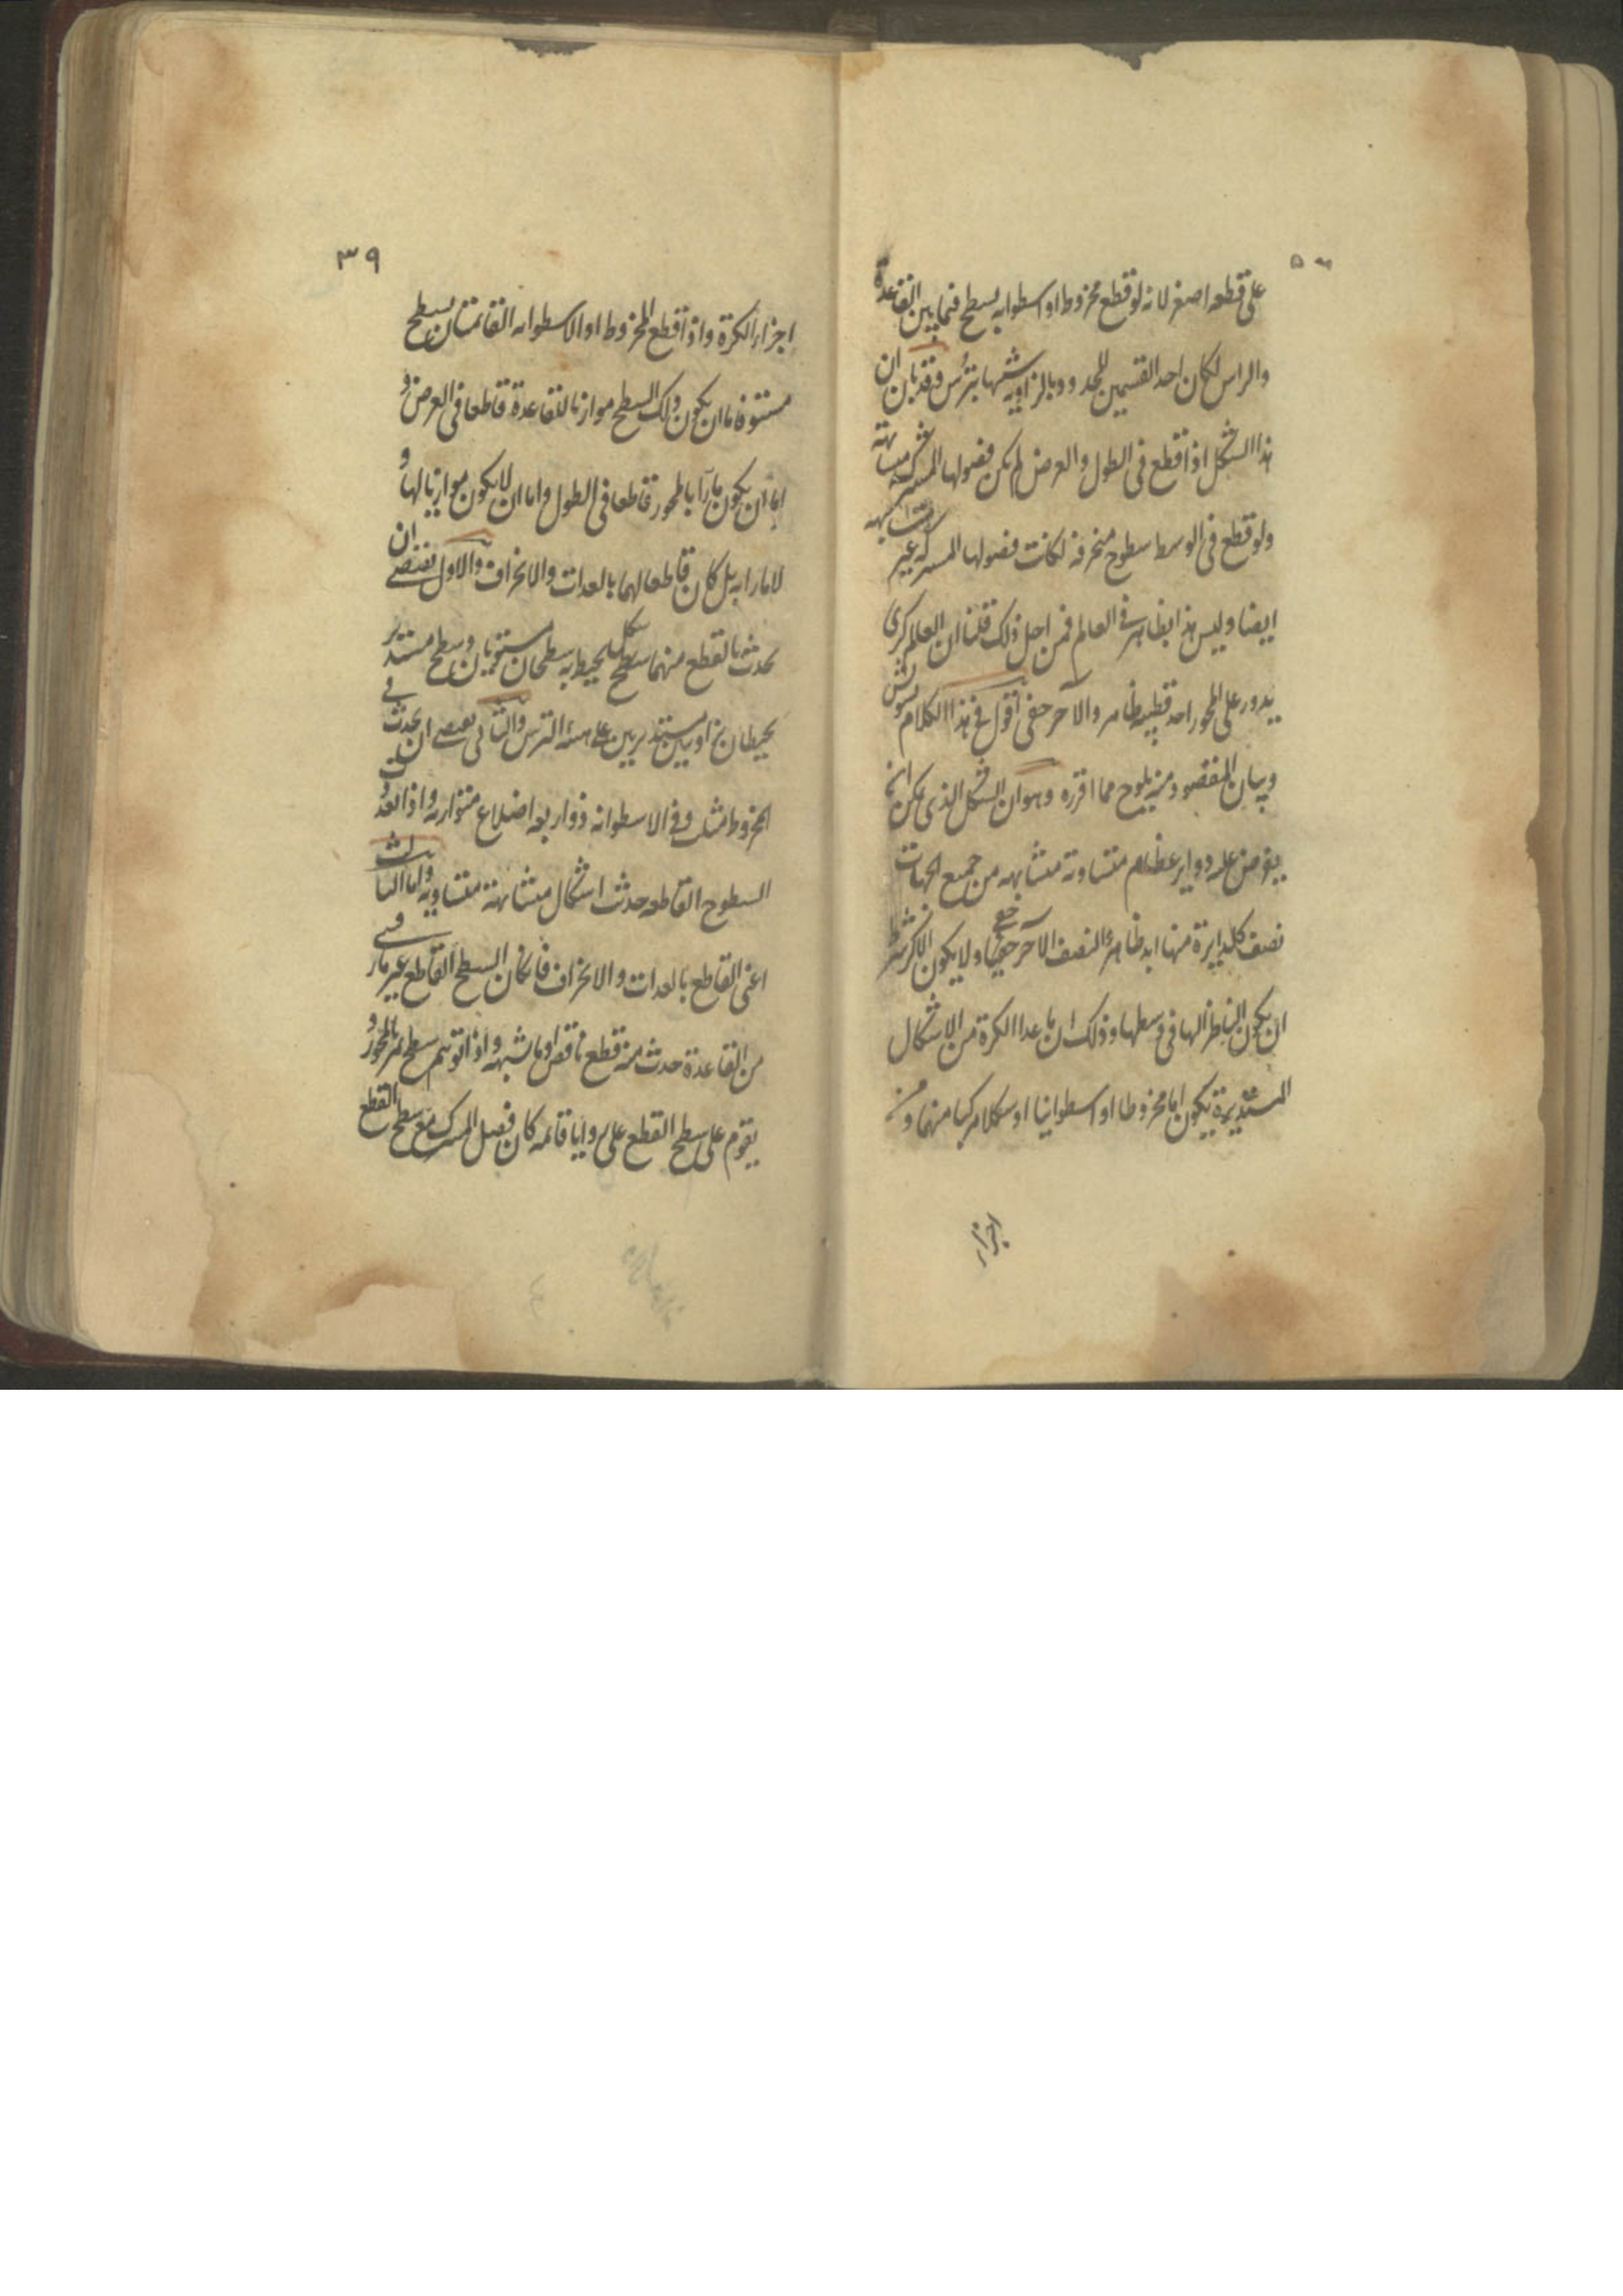 على قطعه اصغر لانه لو قطع مخروط او اسطوانه بسطح فيما بين القاعدة
والراس لكان احد القسمين للمحدود بالزاويه شبيها بترس وقد بان ان
هذا الشكل اذا قطع فى الطول والعرض لم يكن فصولها المشتركه متشابهة
ولو قطع فى الوسط سطوح منحرفه لكانت فصولها المشتركه غير متشابهه
ايضا وليس هذا بظاهر فى العالم فمن اجل ذلك قلنا ان العالم كرى
يدور على المحور احد قطبيه ظاهر والاخر خفى اقول فى هذا الكلام تشويش
وبيان المقصود منه يلوح مما اقرره وهو ان الشكل الذى يمكن ان
يفرض عليه دواير عظام متساوية متشابهه من جميع الجهات
نصف كل دايرة منها ابدا ظاهر والنصف الآخر خفى ولا يكون الاكر بشرط
ان يكون الناظر اليها فى وسطها وذلك ان ما عدا الكرة من الاشكال
المستديرة يكون اما مخروطا او اسطوانيا او شكلا مركبا منهما ومن
اجزاء
٣٩
اجزاء الكرة واذا قطع المخروط او الاسطوانه القائمتان بسطح
مستو فاما ان يكون ذلك السطح موازيا للقاعدة قاطعا فى العرض و
اما ان يكون مارا بالمحور قاطعا فى الطول واما ان لا يكون موازيا لها و
لا مارا به بل كان قاطعا لهما بالعدات والانحراف والاول يقتضى ان
يحدث بالقطع منهما شكل يحيط به سطحان مستويان وسطح مستدير
يحيطان بزاويتين مستديرتين على هيئة الترس والثانى يقتضى ان يحدث فى
المخروط مثلث وفى الاسطوانه ذو اربعه اضلاع متوازيه واذا تعددت
السطوح القاطعه حدث اشكال متشابهة متساويه واما الثالث
اعنى القاطع بالعدات والانحراف فان كان السطح القاطع غير مار بشى
من القاعدة حدث منه قطع ناقص او ما شبهه واذا توهم سطح يمر بالمحور و
يقوم على سطح القطع على زوايا قائمه كان فصل المشترك مع سطح القطع